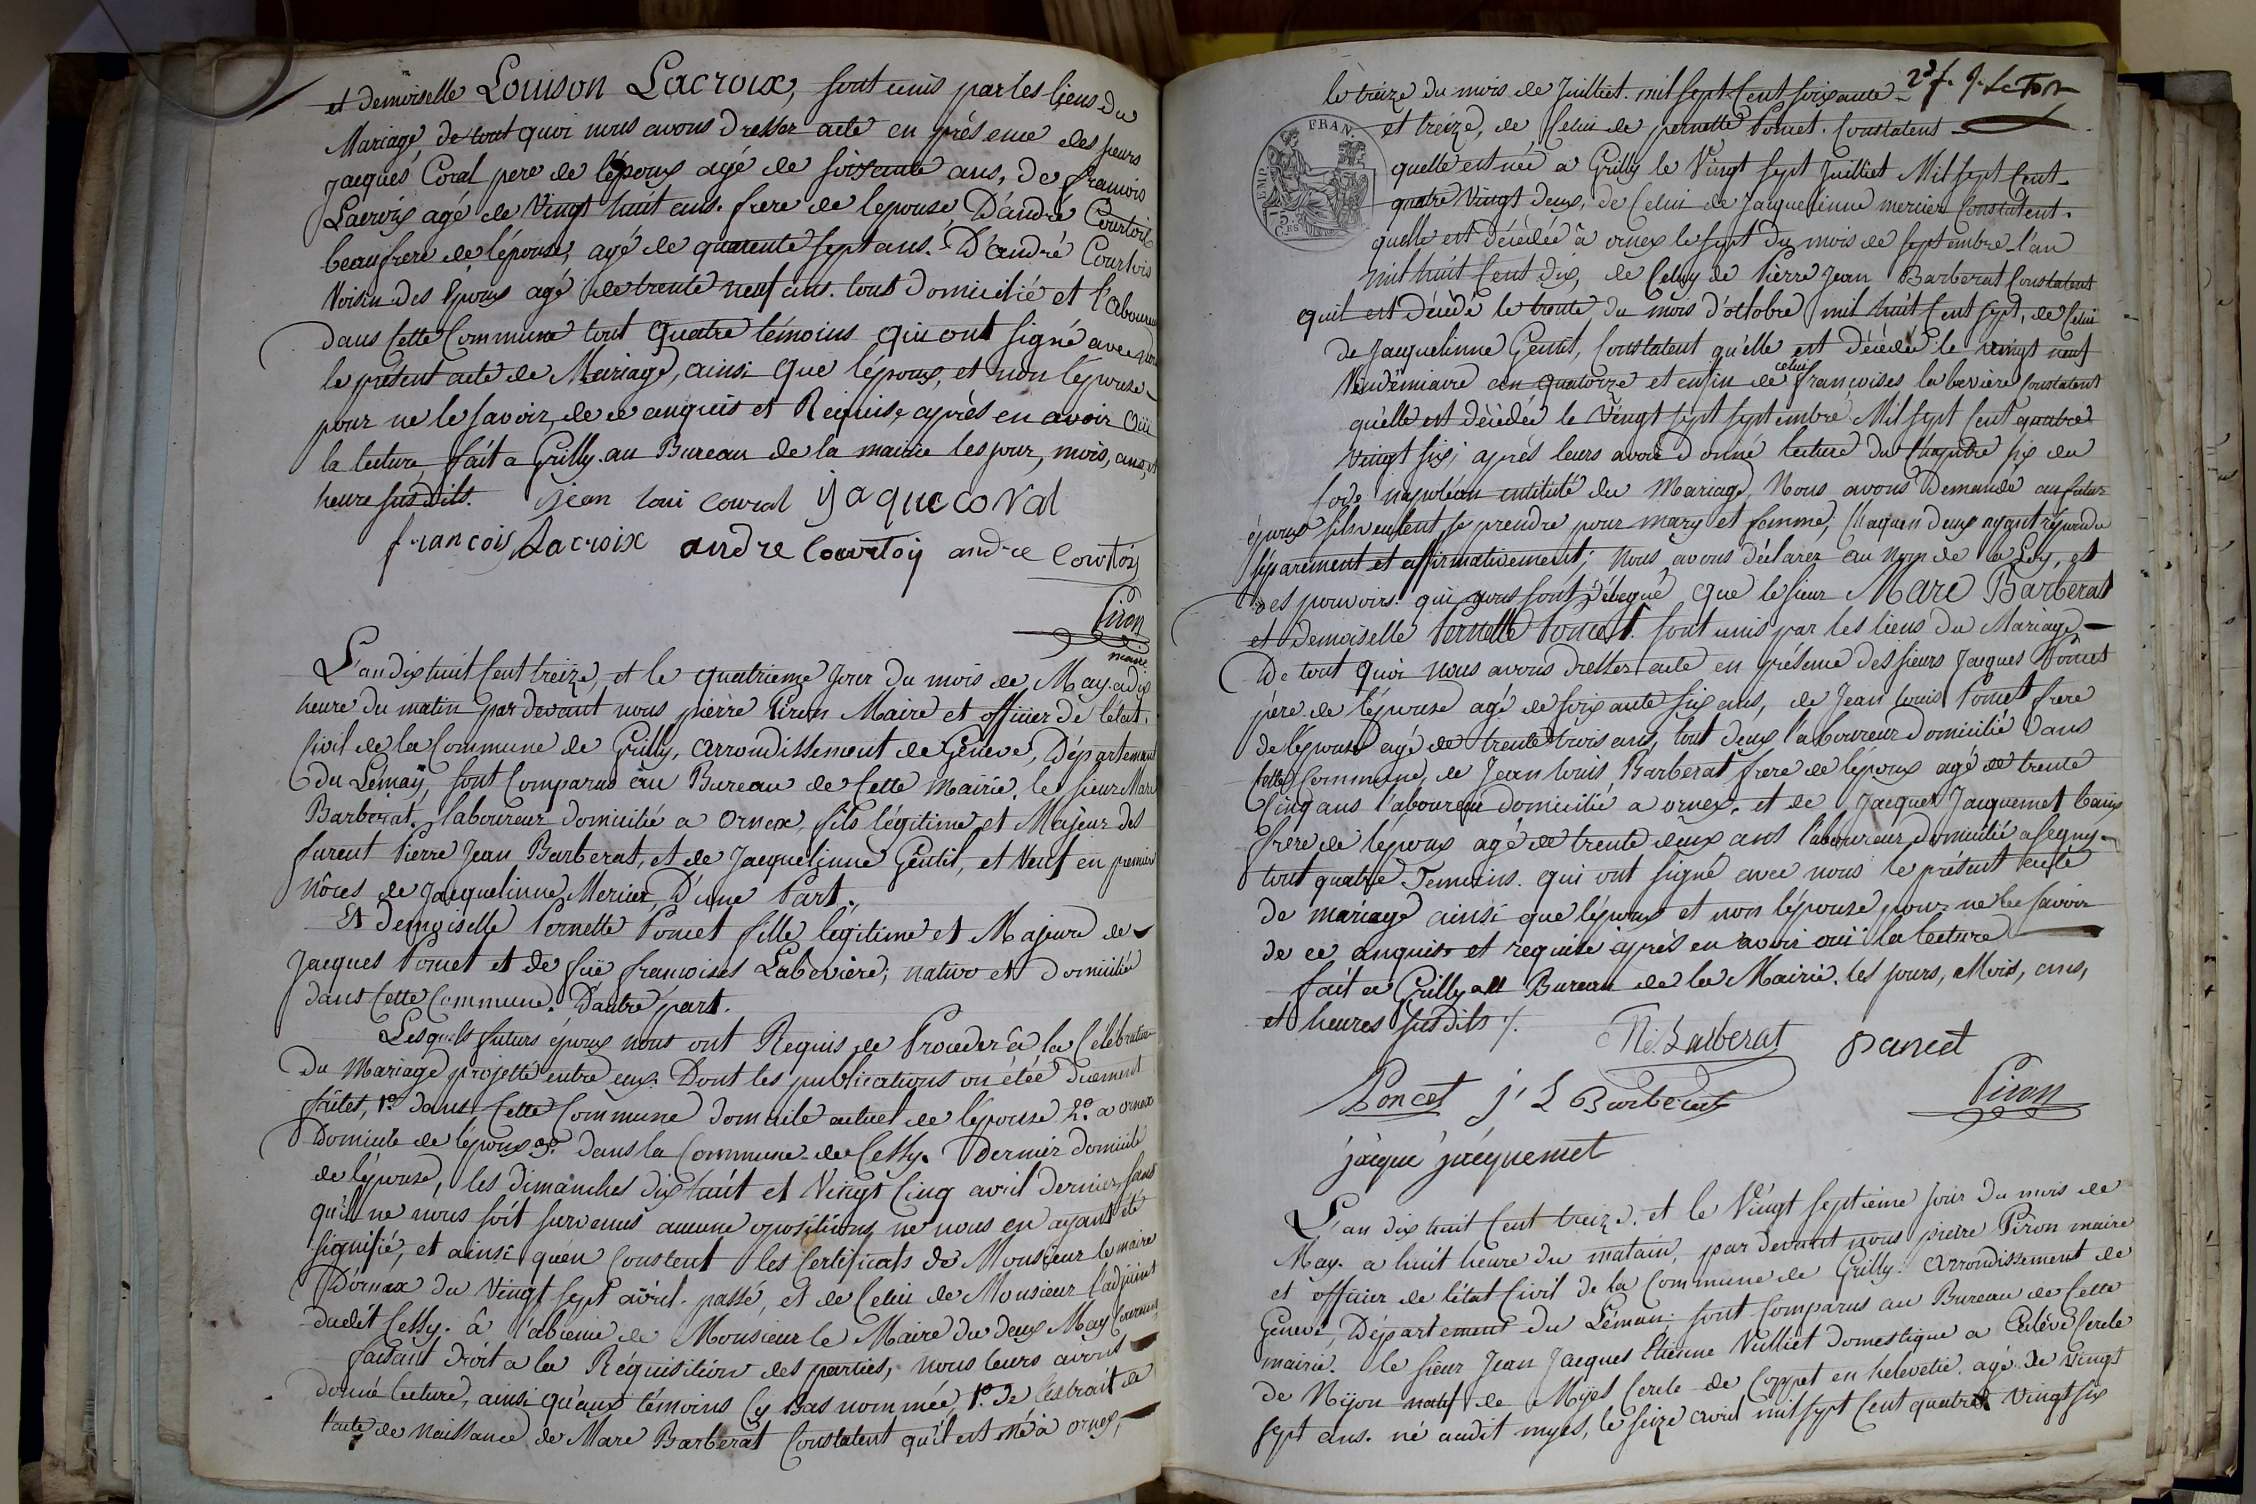 et demoiselle Louison Lacroix, sont unis par les liens du
Mariage, de tout quoi nous avons dresser acte en présence des sieurs
Jacques Coral pere de l'époux agé de soixante ans, de francois
Lacroix agé de Vingt huit ans. frere de lepouse, D'andré Courtois
beaufrere de lépouse, agé de quarente sept ans. D'andré Courtois
Voisin des Epoux agé de trente neuf ans. tous domicilié et laboureur
dans Cette Commune tout quatre témoins qui ont signé avec nous
le présent acte de Mariage, ainsi que lépoux, et non lépouse
pour ne le savoir, de ce anquis et Requise, après en avoir Oüi
la lecture, fait a Grilly au Bureau de la mairie les jour, mois, ans, et
heure susdits. jean loui coural jaque coral
francois Lacroix andre Courtois andre Courtois
Piron
maire
L'an dix huit Cent treize, et le quatrieme Jour du mois de May. a dix
heure du matin par devant nous pierre Piron Maire et officier de létat.
Civil de la Commune de Grilly, Arrondissement de Geneve, Département
du Léman, sont Comparus au Bureau de Cette Mairie, le sieur Marc
Barberat, laboureur domicilié a Ornex, fils légitime et Majeur des
furent Pierre Jean Barberat, et de Jacquelinne Gentil, et Veuf en premier
nôces de Jacquelinne Mercier, D'une Part.,
Et Demoiselle Pernette Poncet fille legitime et Majeure de
Jacques Poncet et de füe francoises Labeviere, native et domiciliée
dans Cette Commune. D'autre part.
Lesquels futurs époux nous ont Requis de Proceder a la Celébration
du Mariage projetté entre eux. Dont les publications on étée duement
faites, 1º dans Cette Commune domicile actuel de lépouse 2º. a ornex
Domicile de lépoux 3º. dans la Commune de Cessy. Dernier domicile
de lépouse, les dimanches dix huit et Vingt Cinq avril dernier, sans
qu'il ne nous soit survenus aucune opositions, ne nous en ayant été
signifié, et ainsi quen Constent les Certificats de Monsieur le maire
D'ornex du Vingt sept avril. passé, et de Celui de Monsieur l'adjoint
dudit Cessy. â l'absence de Monsieur le Maire du deux May Courant
faisant droit a la Réquisition des parties, nous leurs avons
donné lecture, ainsi qu'aux témoins Cy Bas nommée, 1º. de l'extrait de
l'acte de Naissance de Marc Barberat Constatent qu'il est né à ornex,
2d f. J. LeTort
le treize du mois de Juilliet. mil sept Cent soixante
et treize, de Celui de pernette Poncet. Constatent
quelle est née a Grilly le Vingt sept Juilliet Mil sept Cent
quatre Vingt deux, de Celui de Jacquelinne mercier Constatent.
quelle est décédée à ornex le sept du mois de septembre l'an
mil huit Cent dix, de Celuy de Pierre Jean Barberat Constatent
quil est décédé le trente du mois d'octobre mil huit Cent sept, de Celui
de Jacquelinne Gentit, Constatent qu'elle est décédée le vingt neuf
Vendémiaire an quatorze et enfin de celui francoises la beviere Constatent
qu'elle est décédée le Vingt sept septembre Mil sept Cent quatre
vingt six; après leurs avoir donné lecture du Chapitre six du
Code napoléon intitulé du Mariage, Nous avons Demandé au futur
époux sils veulent se prendre pour mary et femme, Chaquun deux ayant répondu
séparement et affirmativement; nous avons déclarez au Nom de la Loy, et
des pouvoirs qui nous sont délegué que le sieur Marc Barberat
et Demoiselle Pernette Poncet. sont unis par les liens du Mariage
De tout quoi nous avons dresser acte en présence des sieurs Jacques Poncet
père de l'épouse agé de soixante six ans, de Jean louis Poncet frere
de lépouse agé de trente trois ans, tout deux laboureur domicilié dans
Cette Commune, de Jean louis Barberat frere de lépoux agé de trente
Cinq ans l'aboureur domicilié a ornex, et de Jacques Jacquemet beaux
frere de lépoux agé de trente deux ans l'aboureur domicilié a segny
tout quatre Temoins. qui ont signé avec nous le présent acte
de mariage ainsi que lépoux et non lépouse pour ne le savoir
de ce anquise et requise après en avoir ouï la lecture
fait a Grilly au Bureau de la Mairie. les jours, Mois, ans,
et heures susdits ./.
M. Barberat Poncet
Poncet j L Barberat Piron
jaque jacquemet
L'an dix huit Cent treize. et le Vingt septieme Jour du mois de
May. a huit heure du matain, par devant nous pierre Piron maire
et officier de létat Civil de la Commune de Grilly. Arrondissement de
Geneve, Département du Léman, sont Comparus au Bureau de Cette
mairie. le sieur Jean Jacques Etienne Vulliet domestique a Calève Cercle
de Nijon natif de Myes Cercle de Coppet en helvetie. agé de vingt
sept ans. né audit myes, le seize avril mil sept Cent quatre Vingt six